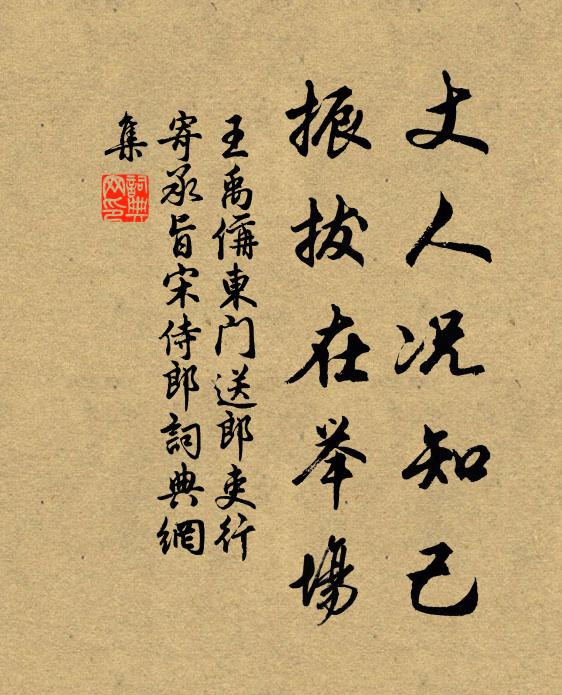 丈人况知己
振拔在举場
王禹偁東门送郎吏行
寄承旨宋侍郎詞典網
集
詞典网印